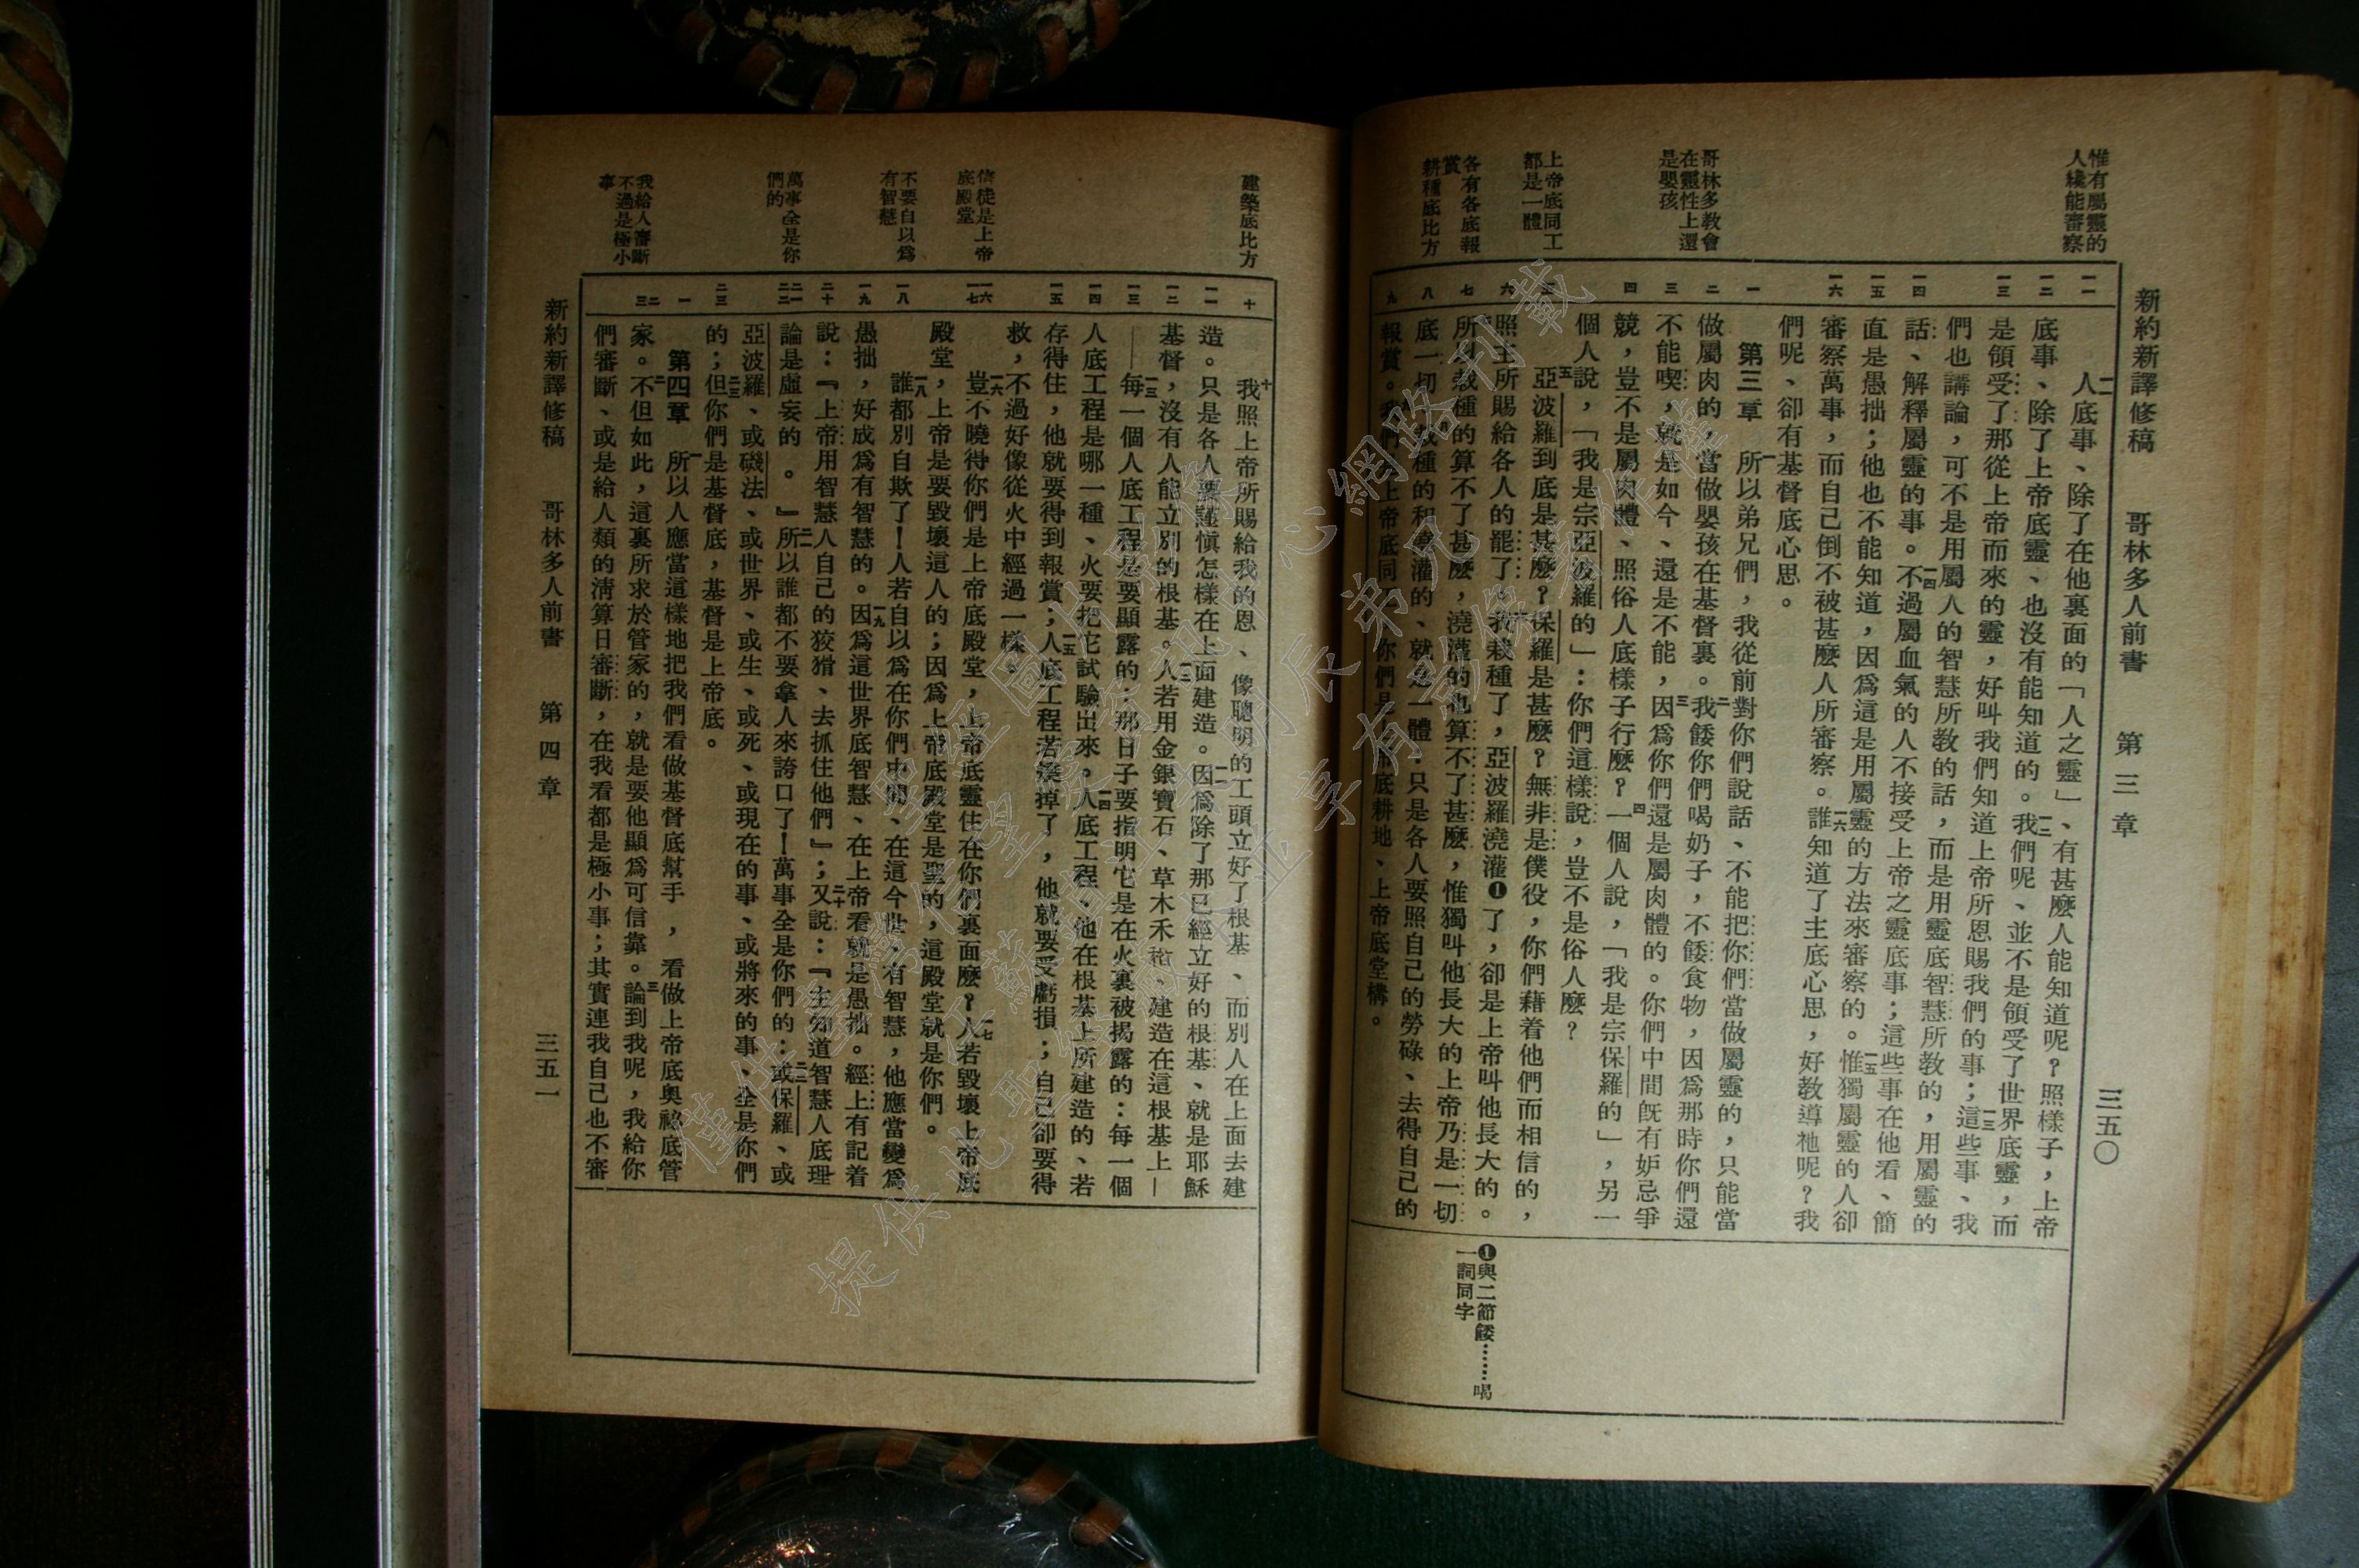 新約新譯修稿 哥林多人前書 第三章 三五〇
惟有屬靈的
人纔能審察
哥林多教會
在靈性上還
是嬰孩
上帝底同工
都是一體
各有各底報
賞
耕種底比方
一一 一二 一三 一四 一五 一六 一 二 三 四 五 六 七 八 九
一一人底事、除了在他裏面的「人之靈」、有甚麼人能知道呢?照樣子,上帝
底事、除了上帝底靈、也沒有能知道的。一二我們呢、並不是領受了世界底靈,而
是領受了那從上帝而來的靈,好叫我們知道上帝所恩賜我們的事;一三這些事、我
們也講論,可不是用屬人的智慧所教的話,而是用靈底智慧所教的,用屬靈的
話、解釋屬靈的事。一四不過屬血氣的人不接受上帝之靈底事;這些事在他看、簡
直是愚拙;他也不能知道,因爲這是用屬靈的方法來審察的。一五惟獨屬靈的人卻
審察萬事,而自己倒不被甚麼人所審察。一六誰知道了主底心思,好教導祂呢?我
們呢、卻有基督底心思。
第三章 一所以弟兄們,我從前對你們說話、不能把你們當做屬靈的,只能當
做屬肉的,當做嬰孩在基督裏。二我餧你們喝奶子,不餧食物,因爲那時你們還
不能喫,就是如今、還是不能,三因爲你們還是屬肉體的。你們中間旣有妒忌爭
競,豈不是屬肉體、照俗人底樣子行麼?四一個人說,「我是宗保羅的」,另一
個人說,「我是宗亞波羅的」:你們這樣說,豈不是俗人麼?
五亞波羅到底是甚麼?保羅是甚麼?無非是僕役,你們藉着他們而相信的,
照主所賜給各人的罷了。六我栽種了,亞波羅澆灌❶了,卻是上帝叫他長大的。
所以栽種的算不了甚麼,澆灌的也算不了甚麼,惟獨叫他長大的上帝乃是一切
底一切。栽種的和澆灌的、就是一體,只是各人要照自己的勞碌、去得自己的
報賞。我們是上帝底同工,你們是上帝底耕地、上帝底堂構。
❶與二節餧……喝
一詞同字
建築底比方
信徒是上帝
底殿堂
不要自以爲
有智慧
萬事全是你
們的
我給人審斷
不過是極小
事
十 一一 一二 一三 一四 一五 一六 一七 一八 一九 二十 二一 二二 二三 一 二 三
十我照上帝所賜給我的恩、像聰明的工頭立好了根基、而別人在上面去建
造。只是各人要謹愼怎樣在上面建造。一一因爲除了那已經立好的根基、就是耶穌
基督,沒有人能立別的根基。一二人若用金銀寶石、草木禾稭、建造在這根基上—
—一三每一個人底工程是要顯露的:那日子要指明它是在火裏被揭露的:每一個
人底工程是哪一種、火要把它試驗出來。一四人底工程、他在根基上所建造的、若
存得住,他就要得到報賞;一五人底工程若燒掉了,他就要受虧損;自己卻要得
救,不過好像從火中經過一樣。
一六豈不曉得你們是上帝底殿堂,上帝底靈住在你們裏面麼?一七人若毀壞上帝底
殿堂,上帝是要毀壞這人的;因爲上帝底殿堂是聖的,這殿堂就是你們。
一八誰都別自欺了!人若自以爲在你們中間、在這今世、有智慧,他應當變爲
愚拙,好成爲有智慧的。一九因爲這世界底智慧、在上帝看就是愚拙。經上有記着
說:『上帝用智慧人自己的狡猾、去抓住他們』;二十又說:『主知道智慧人底理
論是虛妄的。』二一所以誰都不要拿人來誇口了!萬事全是你們的:二二或保羅、或
亞波羅、或磯法、或世界、或生、或死、或現在的事、或將來的事、全是你們
的;二三但你們是基督底,基督是上帝底。
第四章 一所以人應當這樣地把我們看做基督底幫手,看做上帝底奧祕底管
家。二不但如此,這裏所求於管家的,就是要他顯爲可信靠。三論到我呢,我給你
們審斷、或是給人類的淸算日審斷,在我看都是極小事;其實連我自己也不審
新約新譯修稿 哥林多人前書 第四章 三五一